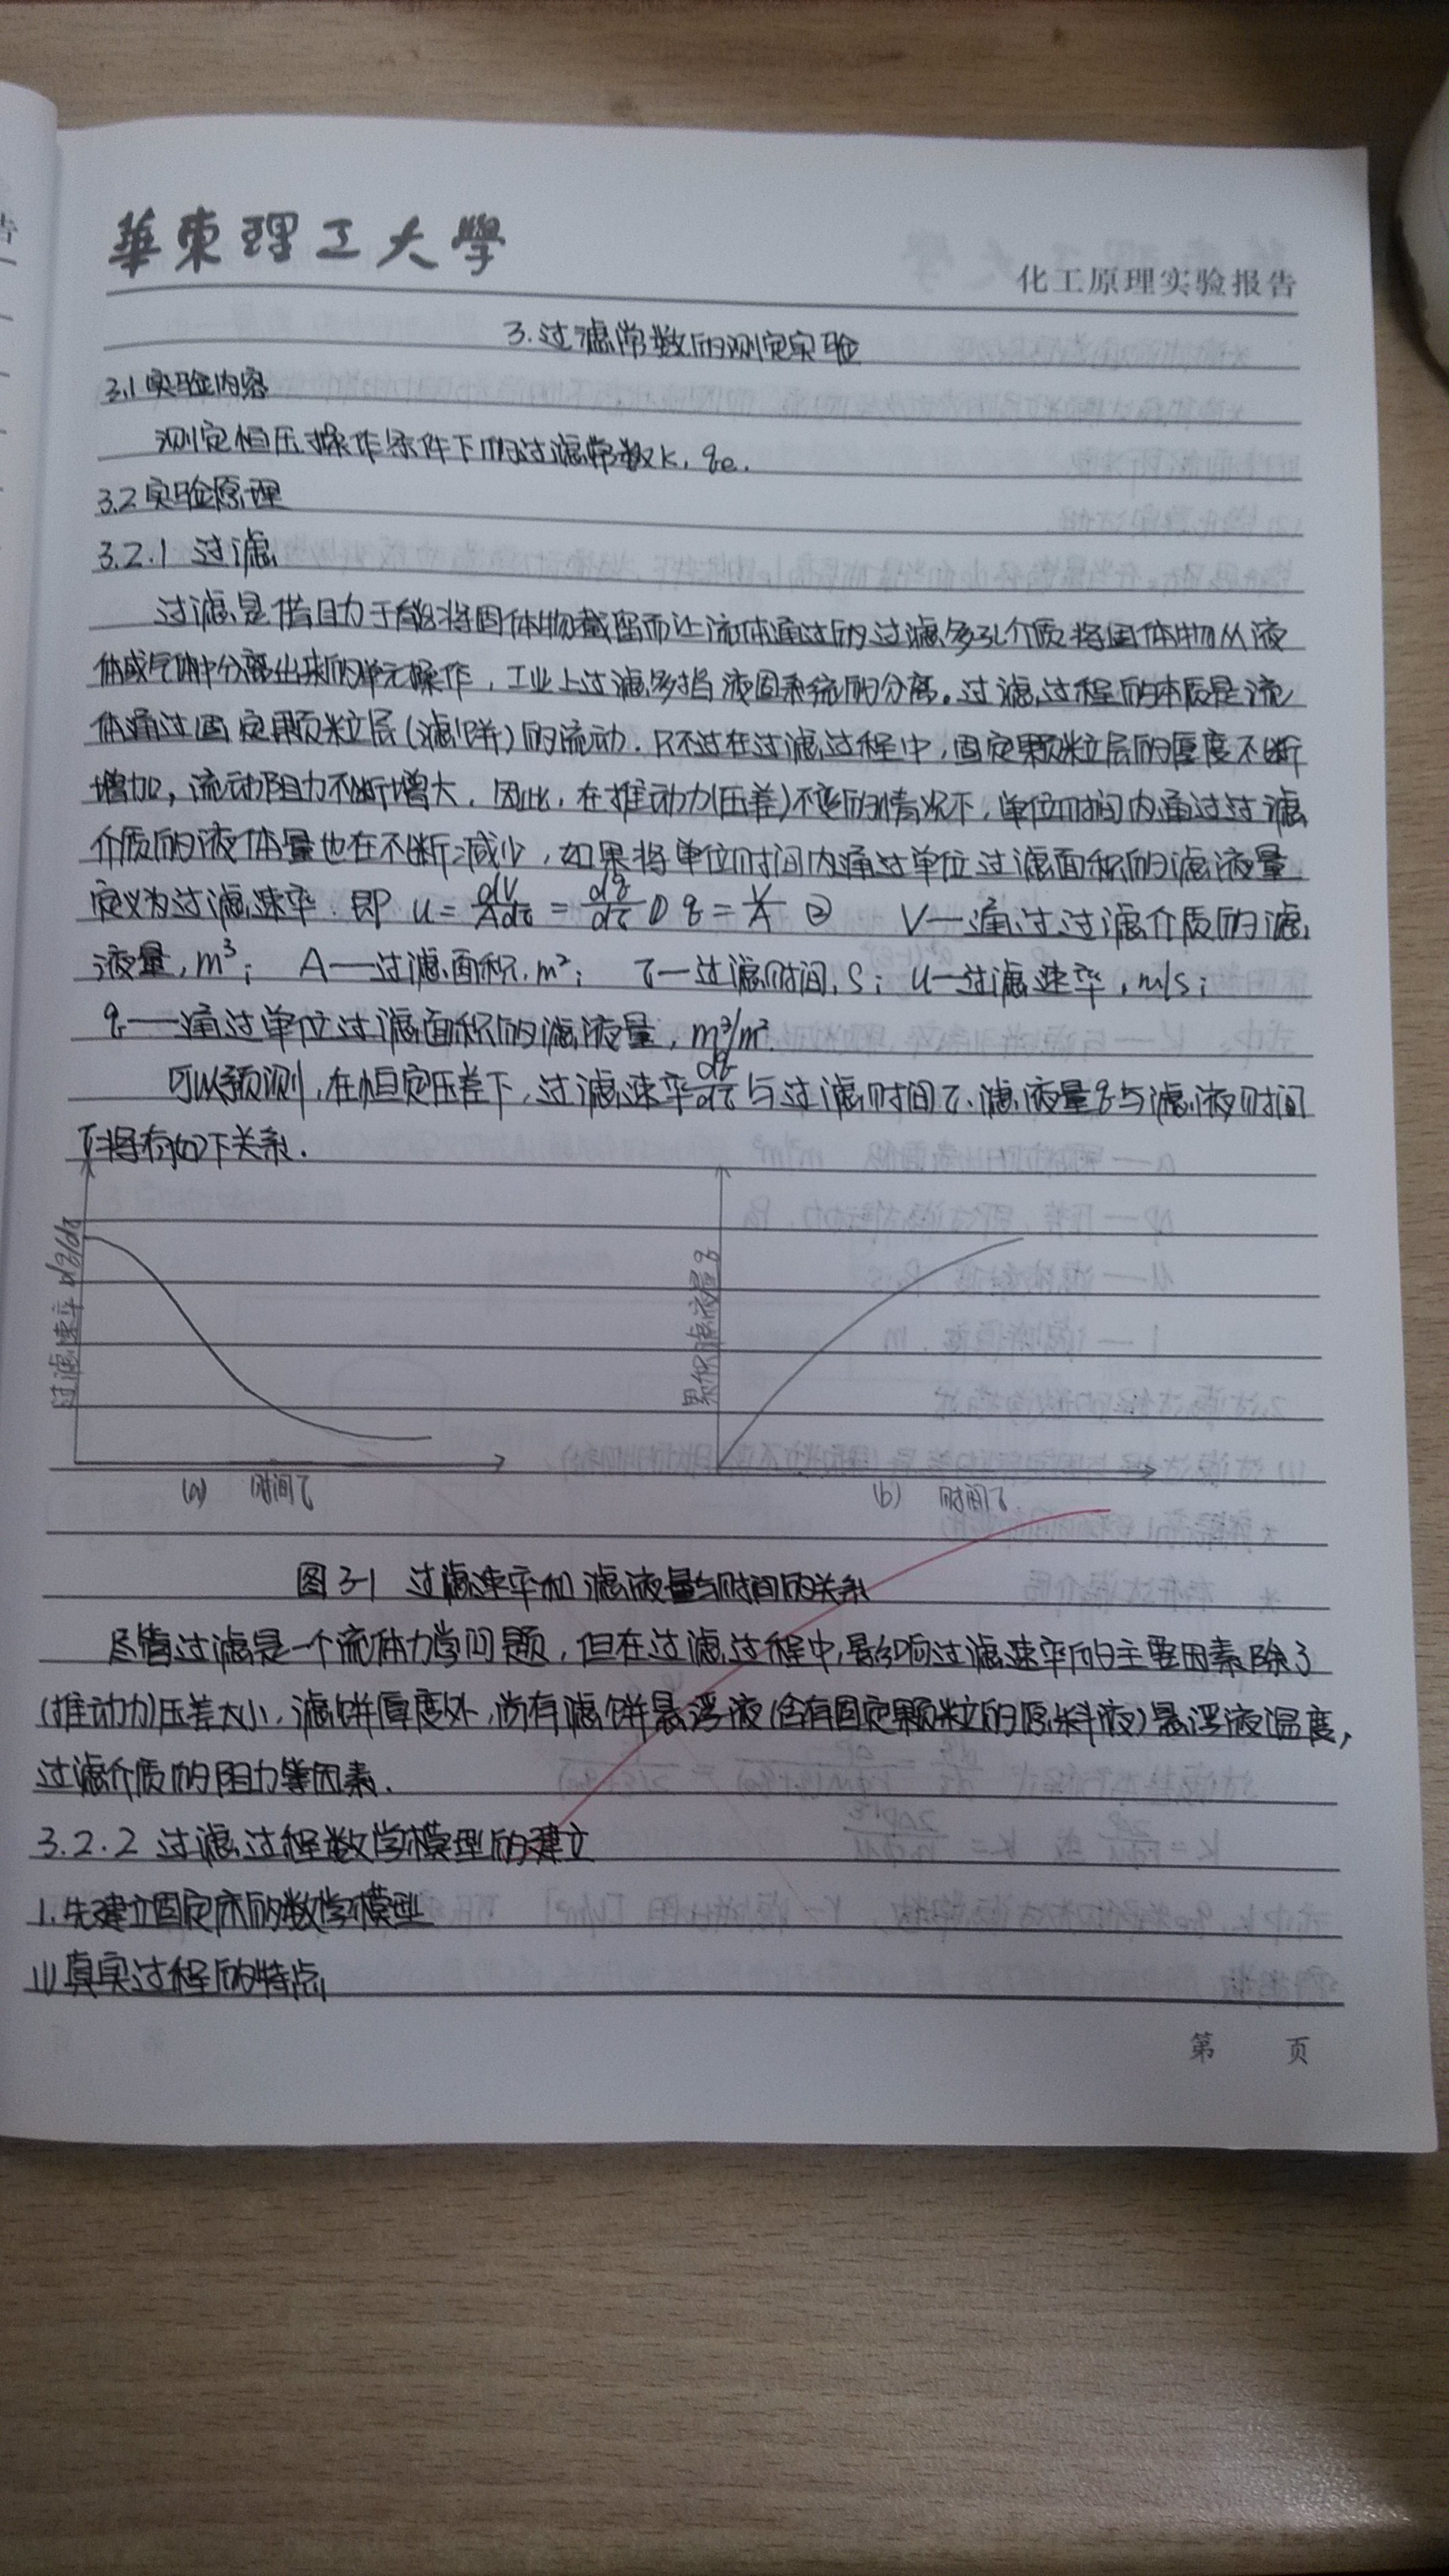 華東理工大學
化工原理实验报告
3.过滤常数的测定实验
3.1实验内容
测定恒压操作条件下的过滤常数K,qe.
3.2实验原理
3.2.1 过滤
过滤是借助于能将固体物截留而让流体通过的过滤多孔介质将固体物从液
体或气体中分离出来的单元操作,工业上过滤多指液固系统的分离。过滤过程的本质是流
体通过固定颗粒层(滤饼)的流动.只不过在过滤过程中,固定颗粒层的厚度不断
增加,流动阻力不断增大.因此,在推动力(压差)不变的情况下,单位时间内通过过滤
介质的液体量也在不断减少,如果将单位时间内通过单位过滤面积的滤液量
定义为过滤速率.即 u=dV/Adτ=dq/dτ ① q=V/A ② V—通过过滤介质的滤
液量,m³; A—过滤面积,m²; τ—过滤时间,S; u—过滤速率,m/s;
q—通过单位过滤面积的滤液量,m³/m².
可以预测,在恒定压差下,过滤速率dq/dτ与过滤时间τ、滤液量q与滤液时间
τ将有如下关系.
过滤速率 dq/dτ
累积滤液量q
(a) 时间τ
(b) 时间τ
图3-1 过滤速率和滤液量与时间的关系
尽管过滤是一个流体力学问题,但在过滤过程中,影响过滤速率的主要因素除了
(推动力)压差大小,滤饼厚度外,尚有滤饼悬浮液(含有固定颗粒的原料液)悬浮液温度,
过滤介质的阻力等因素.
3.2.2 过滤过程数学模型的建立
1.先建立固定床的数学模型
(1)真实过程的特点
第 页